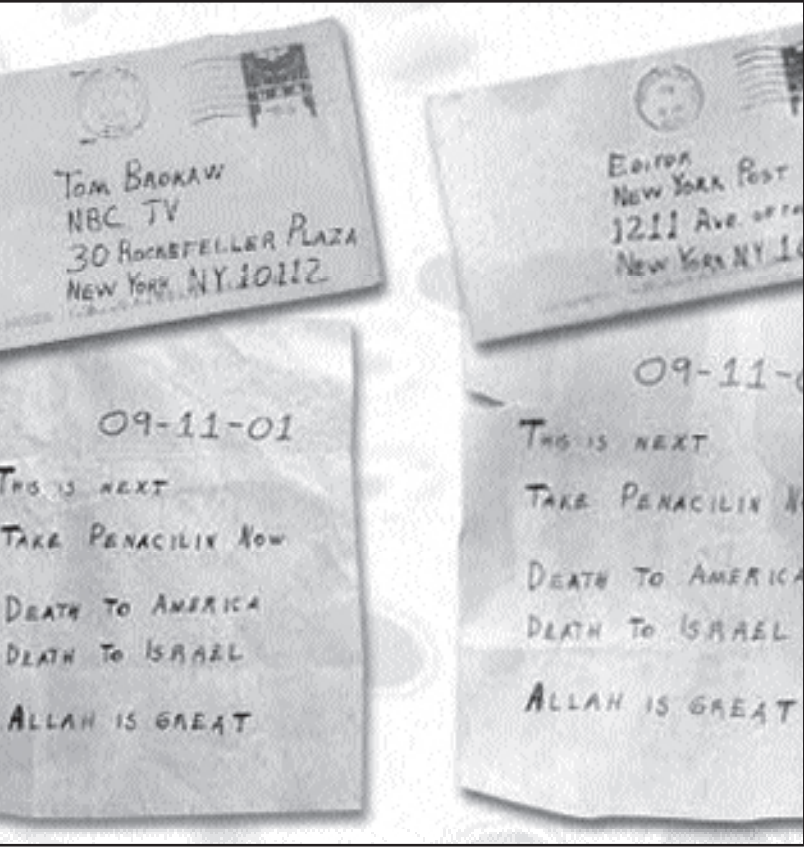 Tom Brokaw
NBC TV
30 Rockefeller Plaza
New York NY 10112
09-11-01
This is next
Take Penacilin Now
Death to America
Death to Israel
Allah is great
Editor
New York Post
1211 Ave. of
New York NY
09-11-
This is next
Take Penacilin
Death to America
Death to Israel
Allah is great